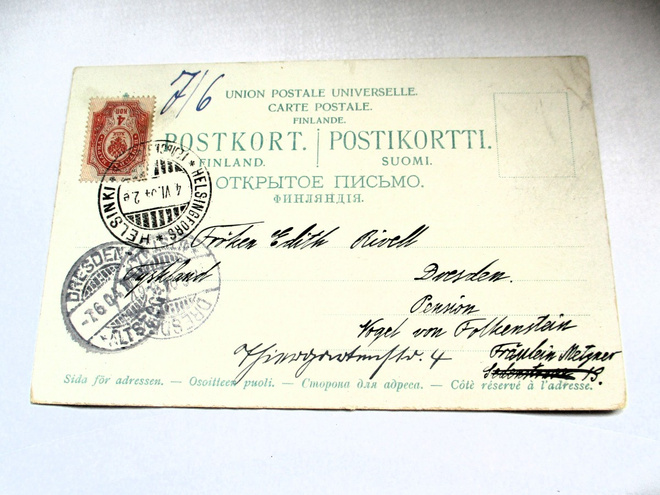 7/6
UNION POSTALE UNIVERSELLE.
CARTE POSTALE.
FINLANDE.
POSTKORT. POSTIKORTTI.
FINLAND. SUOMI.
ОТКРЫТОЕ ПИСЬМО.
ФИНЛЯНДІЯ.
4 КОП
HELSINGFORS * HELSINKI
4 VI.04 2.e
DRESDEN
-7.6.04
ALTST.
DRESD
Fröken Edith Rivell
Tyskland Dresden.
Pension
Vogel von Falkenstein
Thiergartenstr. 4 Fräulein Metzner
Sida för adressen. — Osoitteen puoli. — Сторона для адреса. — Côté réservé à l'adresse.